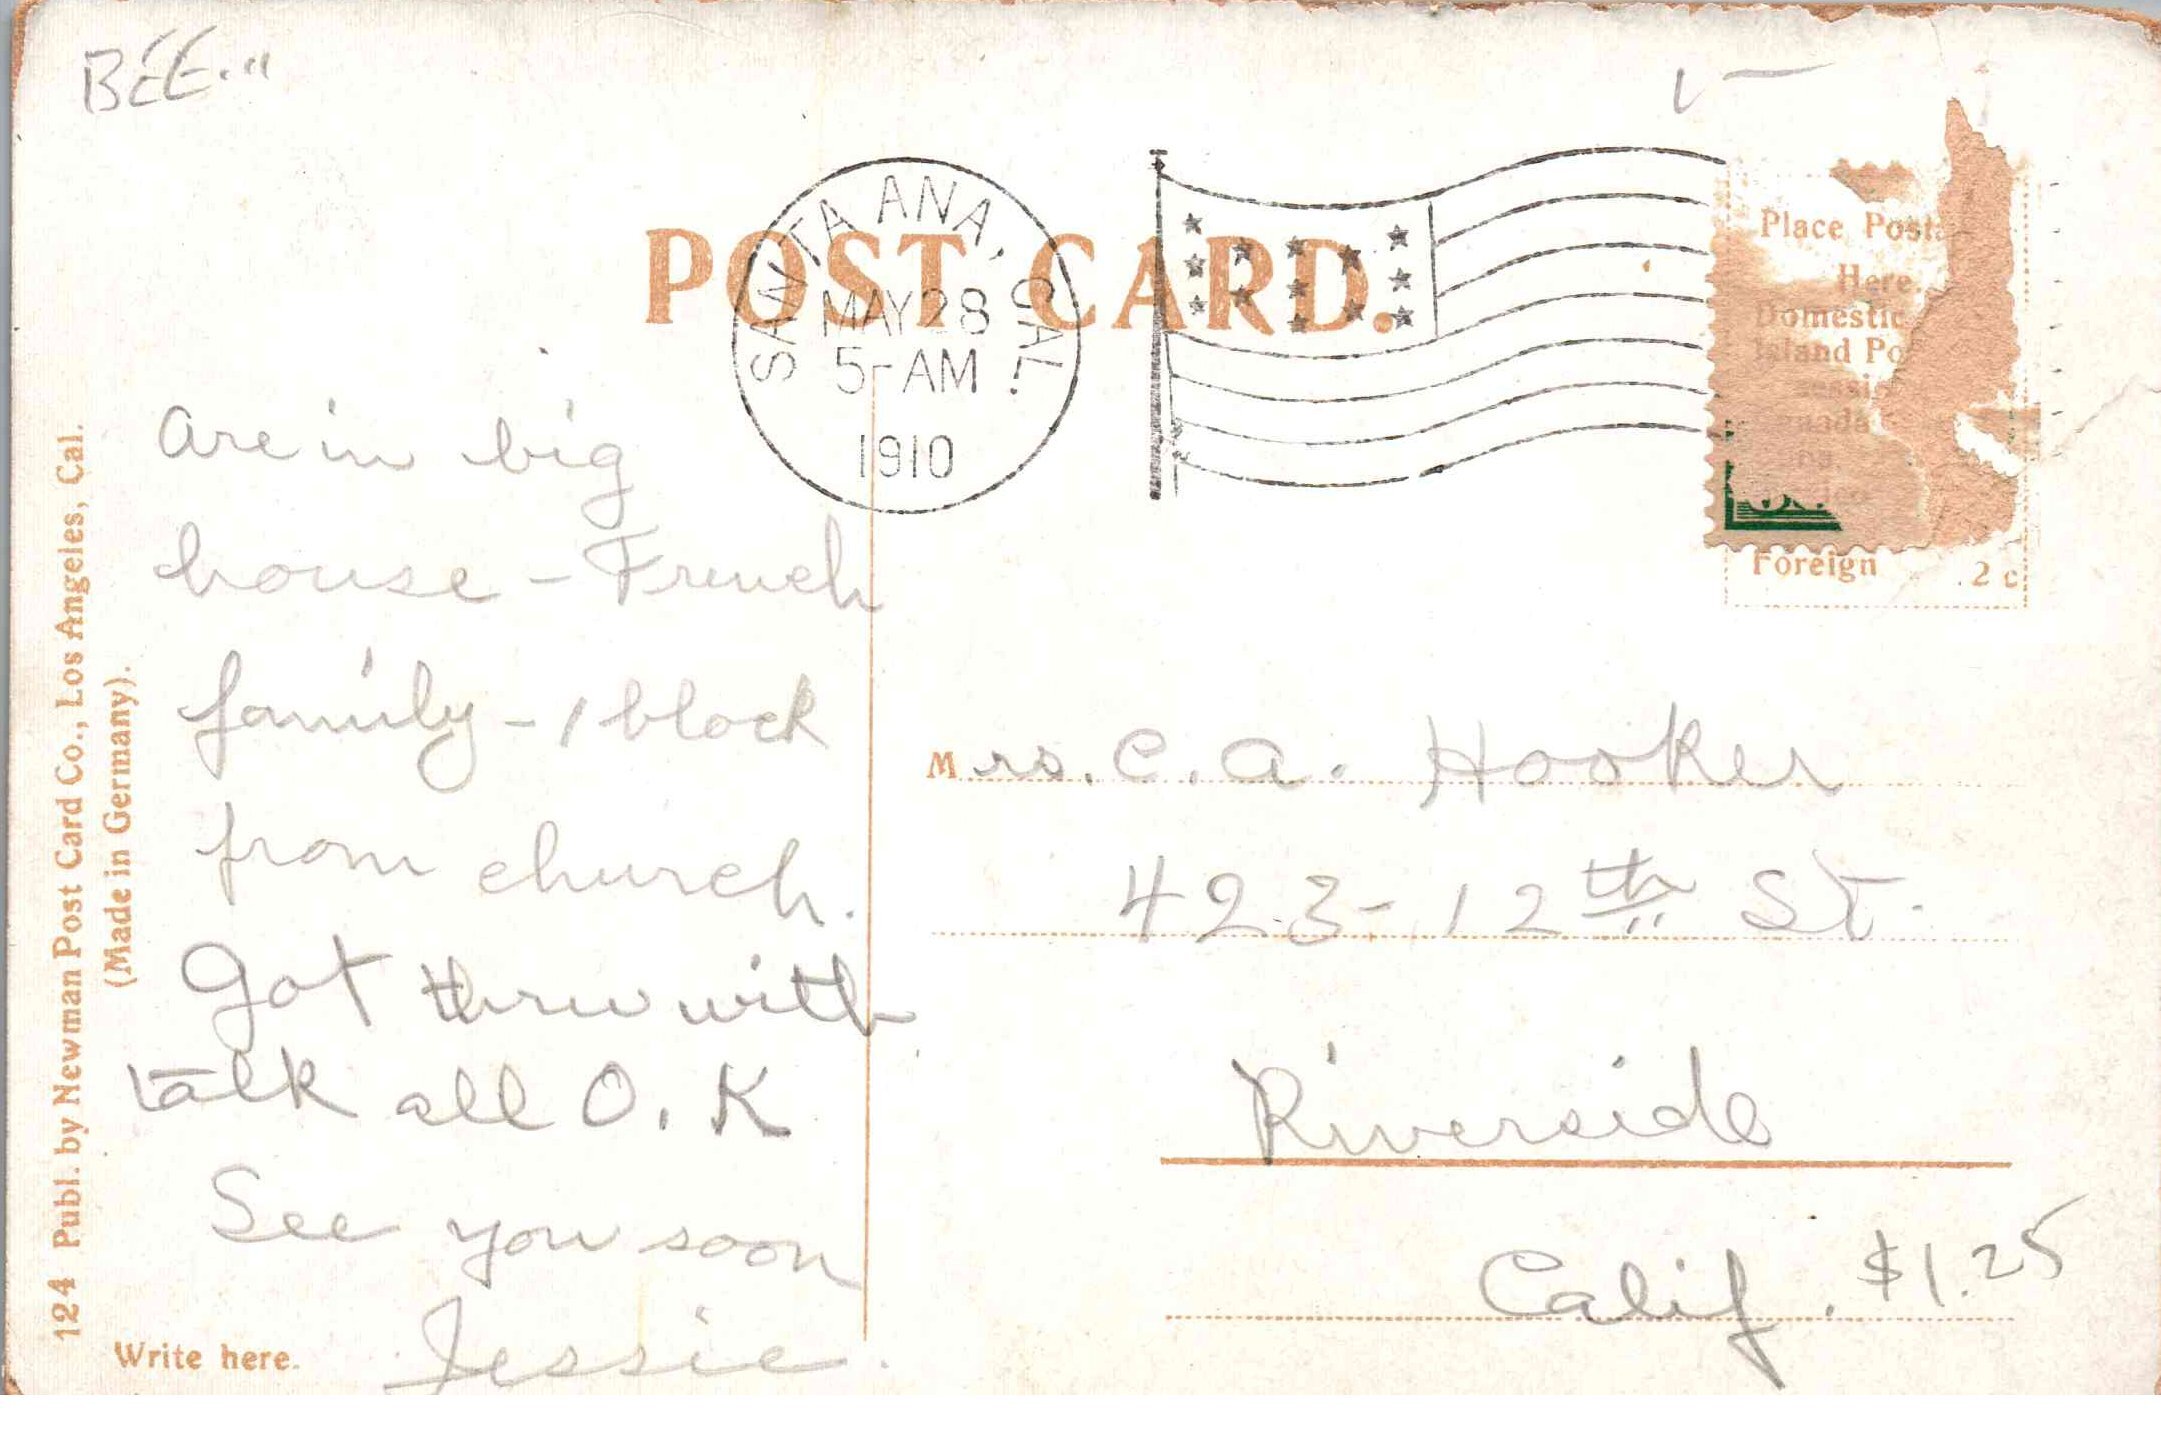 BEE..."
1 —
POST CARD.
SANTA ANA, CAL.
MAY 28
5-AM
1910
Place Posta
Here.
Domestic
Island Po
sessi
anada
Foreign 2 c
are in big
house - French
family - 1 block
from church.
Got thru with
talk all O.K
See you soon
Jessie.
Mrs. C. A. Hooker
423-12th St.
Riverside
Calif. $1.25
124 Publ. by Newman Post Card Co., Los Angeles, Cal.
(Made in Germany).
Write here.